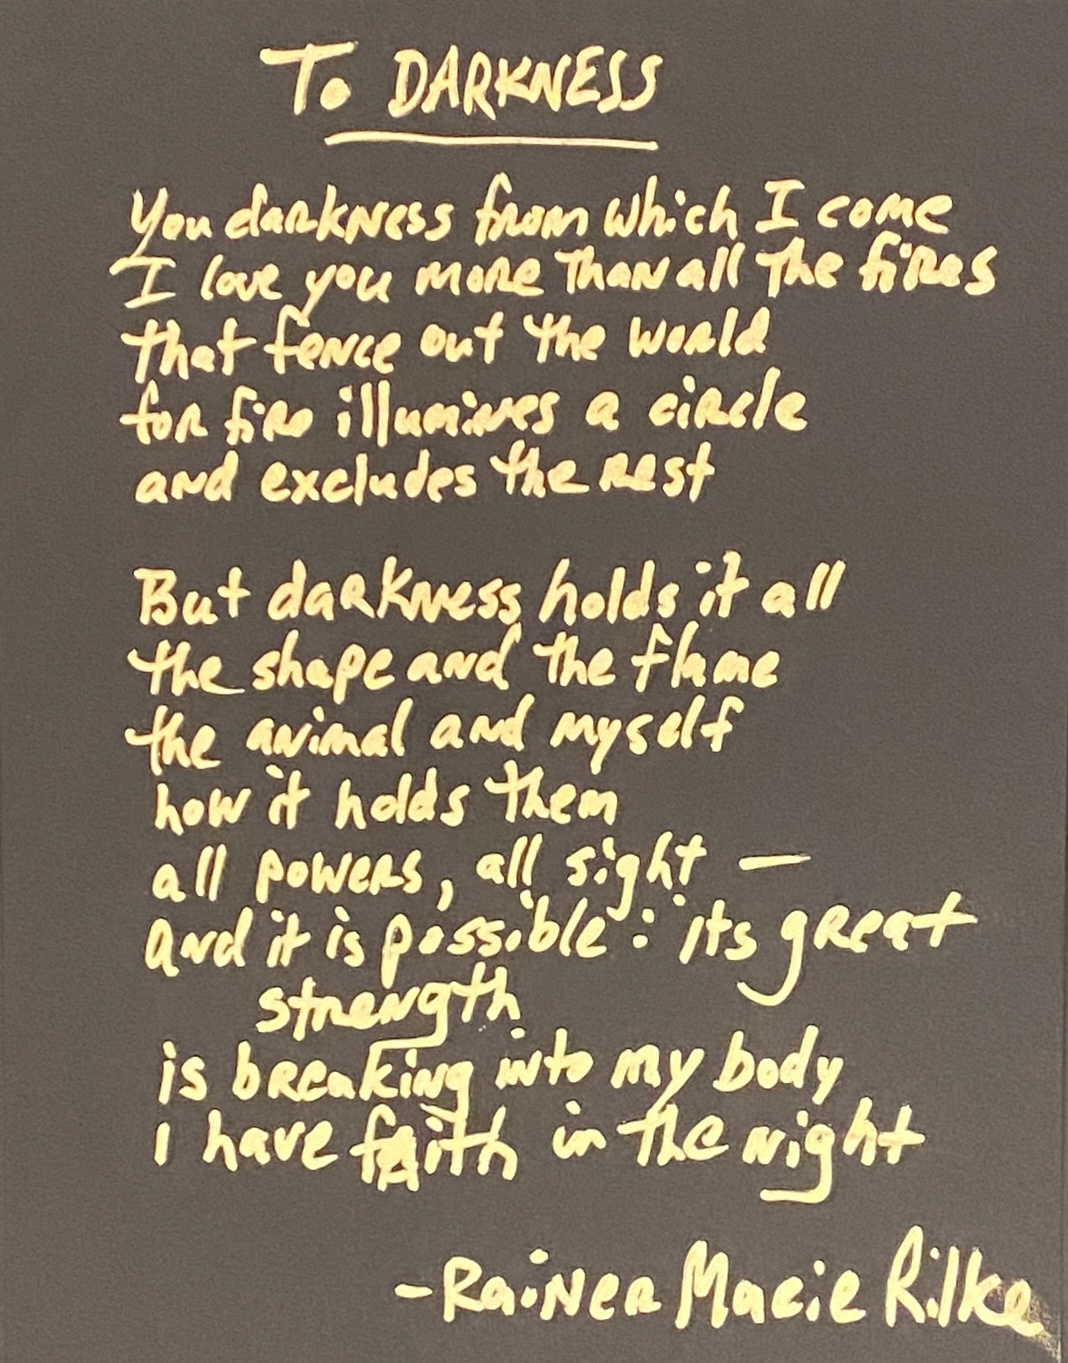 To DARKNESS
You darkness from which I come
I love you more than all the fires
that fence out the world
for fire illumines a circle
and excludes the rest
But darkness holds it all
the shape and the flame
the animal and myself
how it holds them
all powers, all sight —
and it is possible: its great
strength
is breaking into my body
I have faith in the night
-Rainer Marie Rilke